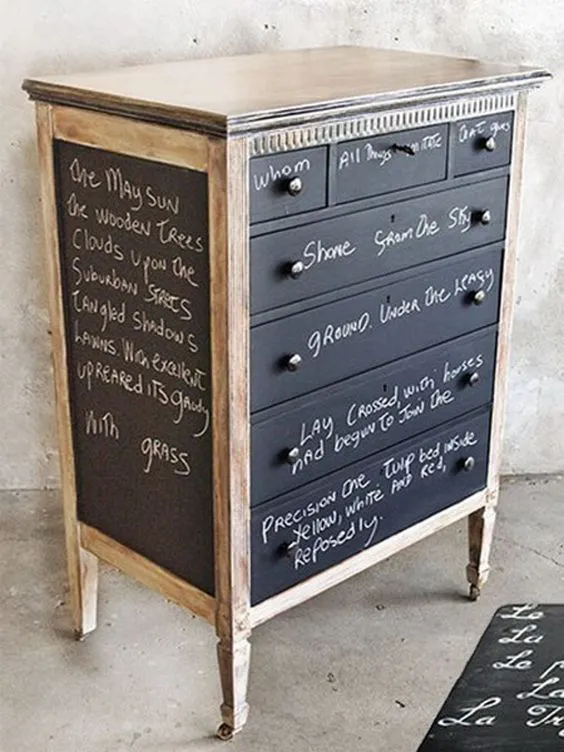 The May Sun
The Wooden Trees
Clouds upon the
Suburban Streets
Tangled Shadows
Lawns. With excellent
upreared its gaudy
With grass
Whom
All Things imitate
That gives
Shone from The Sky
ground. Under The Leafy
Lay Crossed, with houses
had begun to Join the
Precision the Tulip bed inside
Yellow, white and Red,
Reposedly.
Le
La
Le p
La
La Tr